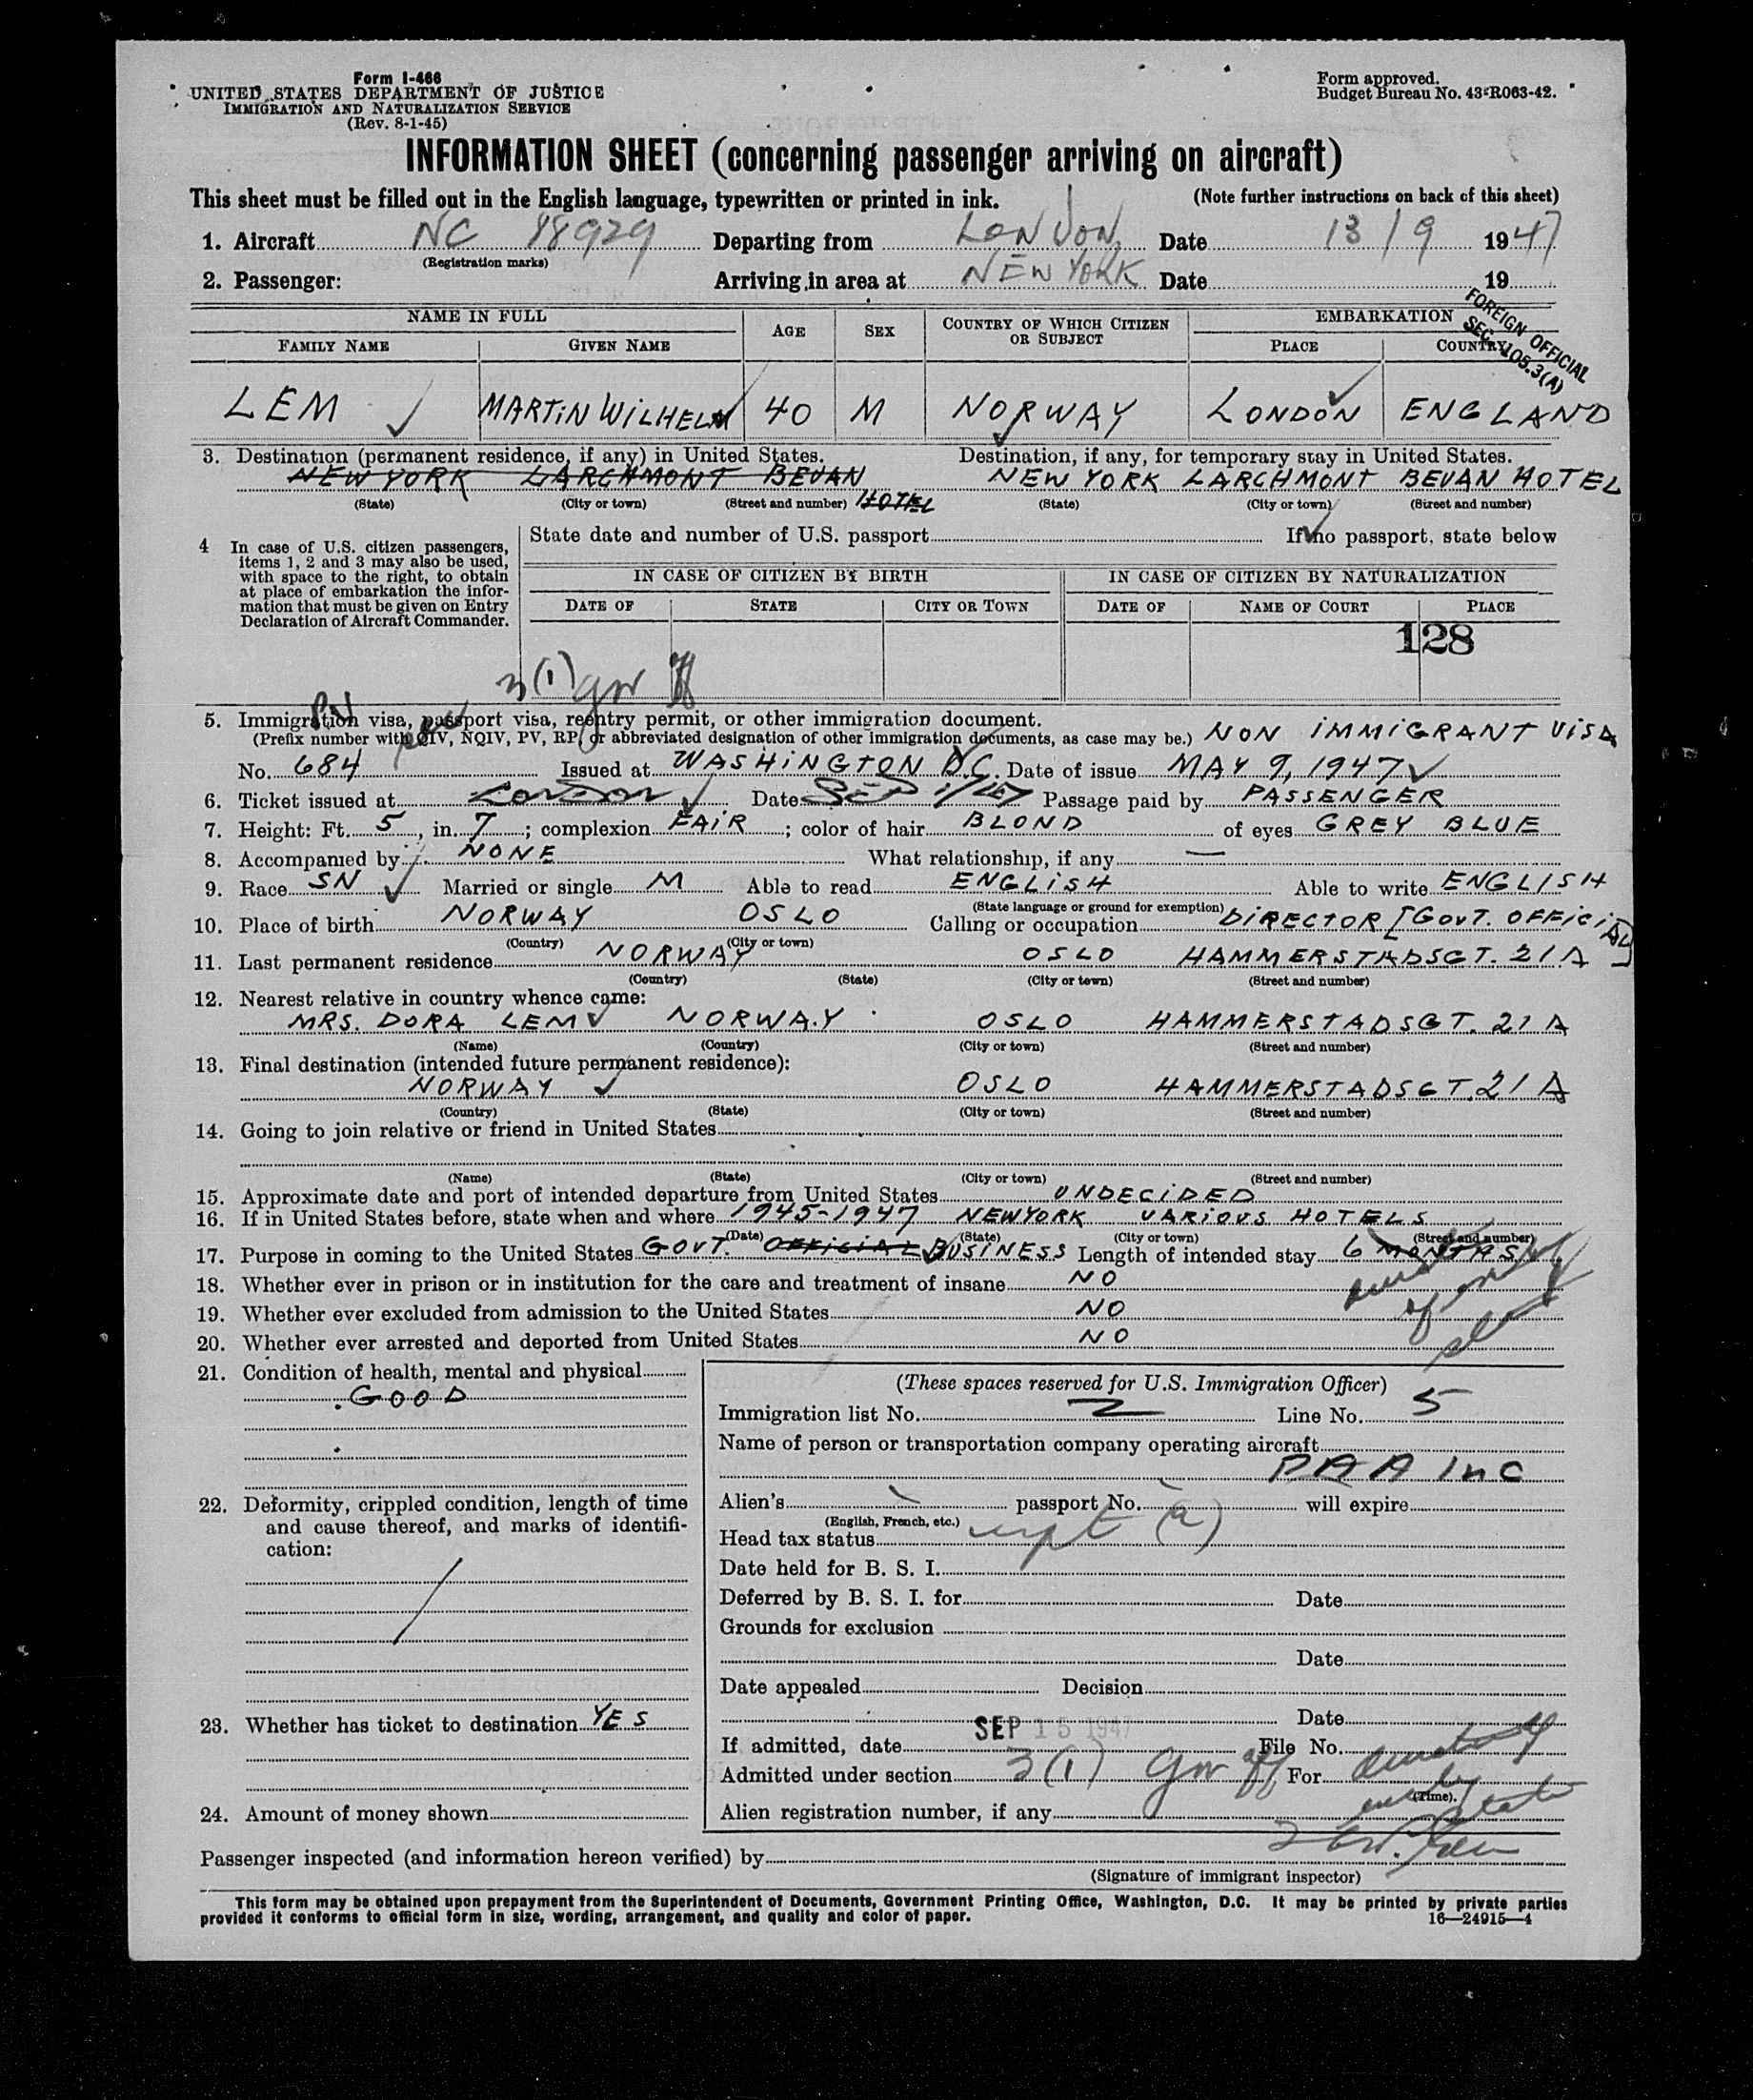 Form I-466
UNITED STATES DEPARTMENT OF JUSTICE
IMMIGRATION AND NATURALIZATION SERVICE
(Rev. 8-1-45)
Form approved.
Budget Bureau No. 43-R063-42.
INFORMATION SHEET (concerning passenger arriving on aircraft)
This sheet must be filled out in the English language, typewritten or printed in ink. (Note further instructions on back of this sheet)
1. Aircraft NC 88929 Departing from LONDON, Date 13/9 1947
(Registration marks)
2. Passenger: Arriving in area at NEW YORK Date 19
FOREIGN OFFICIAL
SEC. 105.3(A)
NAME IN FULL AGE SEX COUNTRY OF WHICH CITIZEN OR SUBJECT EMBARKATION
FAMILY NAME GIVEN NAME PLACE COUNTRY
LEM MARTIN WILHELM 40 M NORWAY LONDON ENGLAND
3. Destination (permanent residence, if any) in United States. Destination, if any, for temporary stay in United States.
NEW YORK LARCHMONT BEVAN HOTEL NEW YORK LARCHMONT BEVAN HOTEL
(State) (City or town) (Street and number) (State) (City or town) (Street and number)
4 In case of U.S. citizen passengers,
items 1, 2 and 3 may also be used,
with space to the right, to obtain
at place of embarkation the infor-
mation that must be given on Entry
Declaration of Aircraft Commander.
State date and number of U.S. passport If no passport, state below
IN CASE OF CITIZEN BY BIRTH IN CASE OF CITIZEN BY NATURALIZATION
DATE OF STATE CITY OR TOWN DATE OF NAME OF COURT PLACE
128
3(1) gov off
PV
5. Immigration visa, passport visa, reentry permit, or other immigration document.
(Prefix number with QIV, NQIV, PV, RP, or abbreviated designation of other immigration documents, as case may be.) NON IMMIGRANT VISA
No. 684 Issued at WASHINGTON D.C. Date of issue MAY 9, 1947
6. Ticket issued at London Date Passage paid by PASSENGER
7. Height: Ft. 5, in. 7; complexion FAIR; color of hair BLOND of eyes GREY BLUE
8. Accompanied by NONE What relationship, if any —
9. Race SN Married or single M Able to read ENGLISH Able to write ENGLISH
(State language or ground for exemption)
10. Place of birth NORWAY OSLO Calling or occupation DIRECTOR [GOVT. OFFICIAL]
(Country) (City or town)
11. Last permanent residence NORWAY OSLO HAMMERSTADSGT. 21 A
(Country) (State) (City or town) (Street and number)
12. Nearest relative in country whence came:
MRS. DORA LEM NORWAY OSLO HAMMERSTADSGT. 21 A
(Name) (Country) (City or town) (Street and number)
13. Final destination (intended future permanent residence):
NORWAY OSLO HAMMERSTADSGT. 21 A
(Country) (State) (City or town) (Street and number)
14. Going to join relative or friend in United States
(Name) (State) (City or town) (Street and number)
15. Approximate date and port of intended departure from United States UNDECIDED
16. If in United States before, state when and where 1945-1947 NEWYORK VARIOUS HOTELS
(Date) (State) (City or town) (Street and number)
17. Purpose in coming to the United States GOVT. OFFICIAL BUSINESS Length of intended stay 6 MONTHS
18. Whether ever in prison or in institution for the care and treatment of insane NO
19. Whether ever excluded from admission to the United States NO
20. Whether ever arrested and deported from United States NO
21. Condition of health, mental and physical
GOOD
22. Deformity, crippled condition, length of time
and cause thereof, and marks of identifi-
cation:
23. Whether has ticket to destination YES
24. Amount of money shown
(These spaces reserved for U.S. Immigration Officer)
Immigration list No. 2 Line No. 5
Name of person or transportation company operating aircraft
PAA Inc
Alien's passport No. will expire
(English, French, etc.)
Head tax status (a)
Date held for B. S. I.
Deferred by B. S. I. for Date
Grounds for exclusion
Date
Date appealed Decision
Date
If admitted, date SEP 15 1947 File No.
Admitted under section 3(1) gov off For
(Time).
Alien registration number, if any
Passenger inspected (and information hereon verified) by
(Signature of immigrant inspector)
This form may be obtained upon prepayment from the Superintendent of Documents, Government Printing Office, Washington, D.C. It may be printed by private parties
provided it conforms to official form in size, wording, arrangement, and quality and color of paper. 16—24915—4